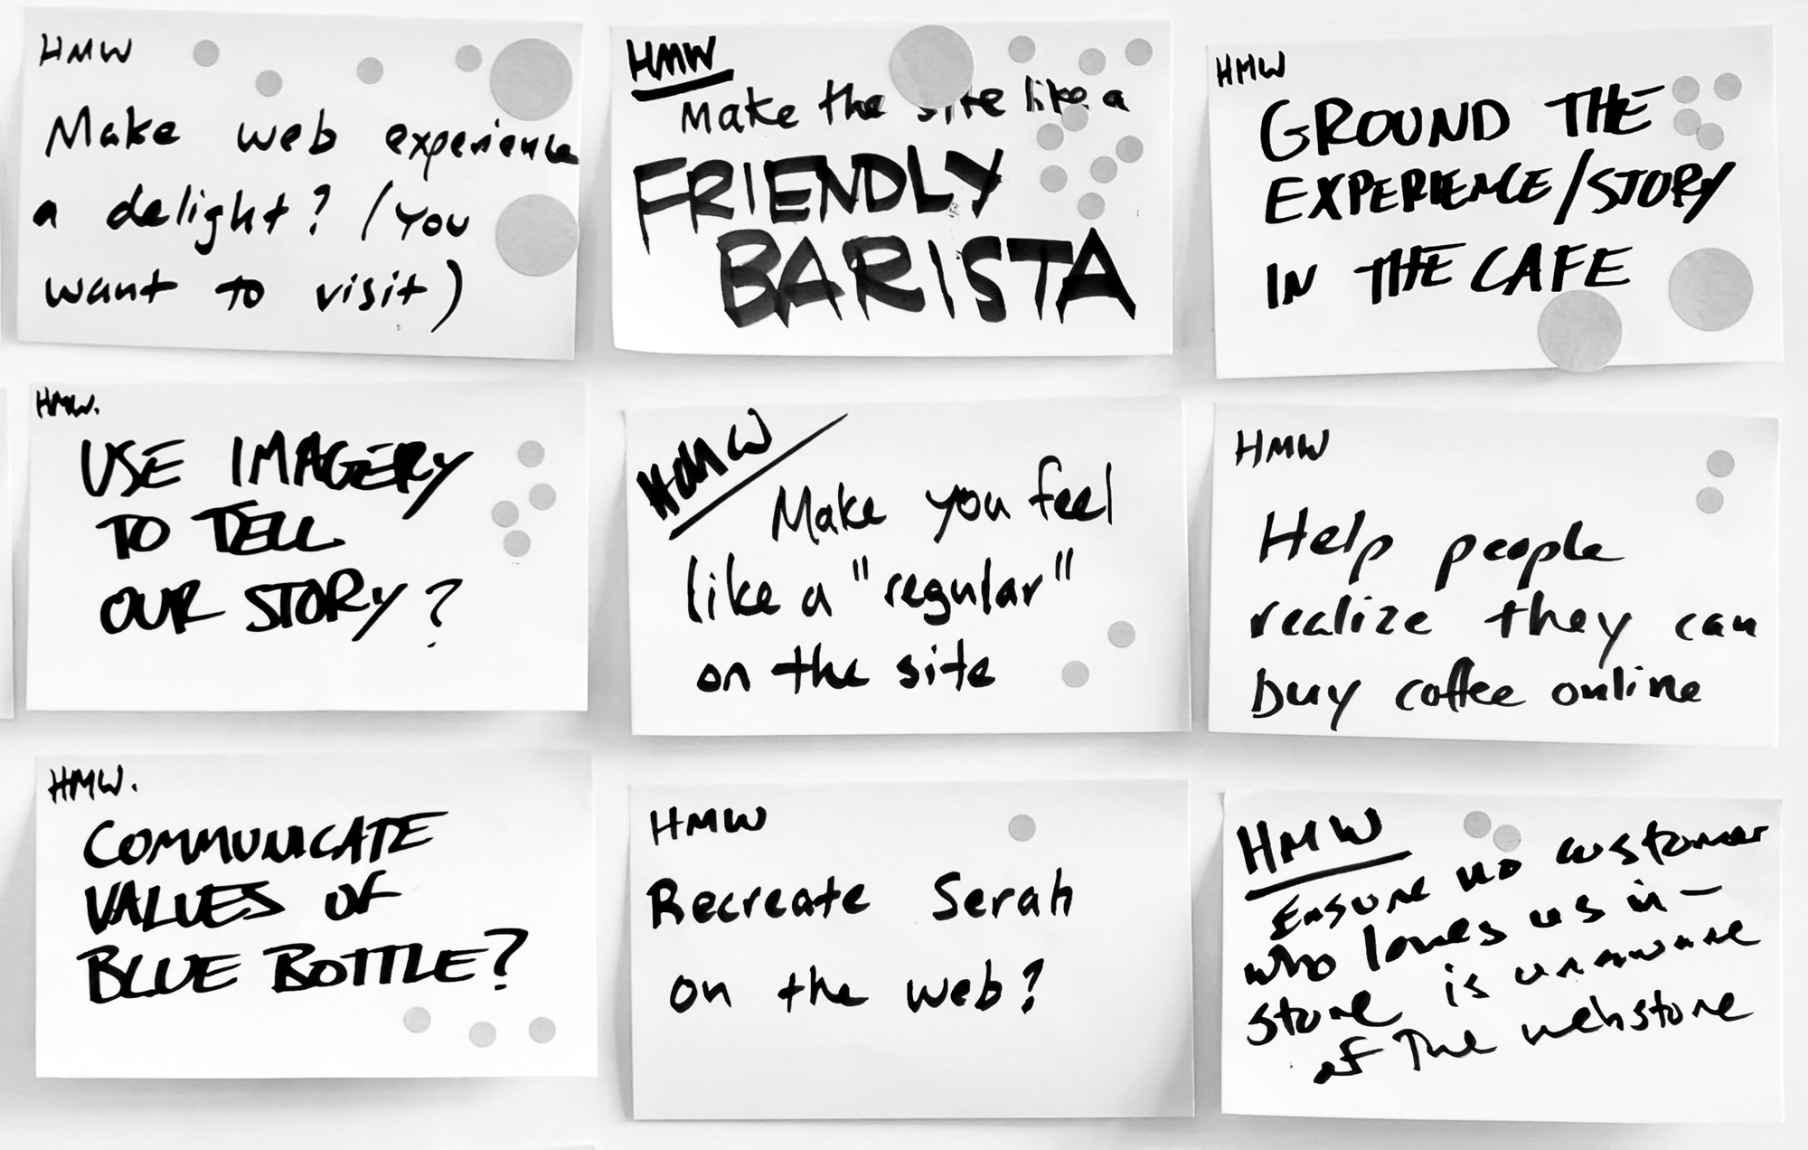 HMW
Make web experience
a delight? (You
want to visit)
HMW
Make the site like a
FRIENDLY
BARISTA
HMW
GROUND THE
EXPERIENCE/STORY
IN THE CAFE
HMW.
USE IMAGERY
TO TELL
OUR STORY?
HMW
Make you feel
like a "regular"
on the site
HMW
Help people
realize they can
buy coffee online
HMW.
COMMUNICATE
VALUES OF
BLUE BOTTLE?
HMW
Recreate Serah
on the web?
HMW
Ensure no customer
who loves us in-
store is unaware
of The webstore